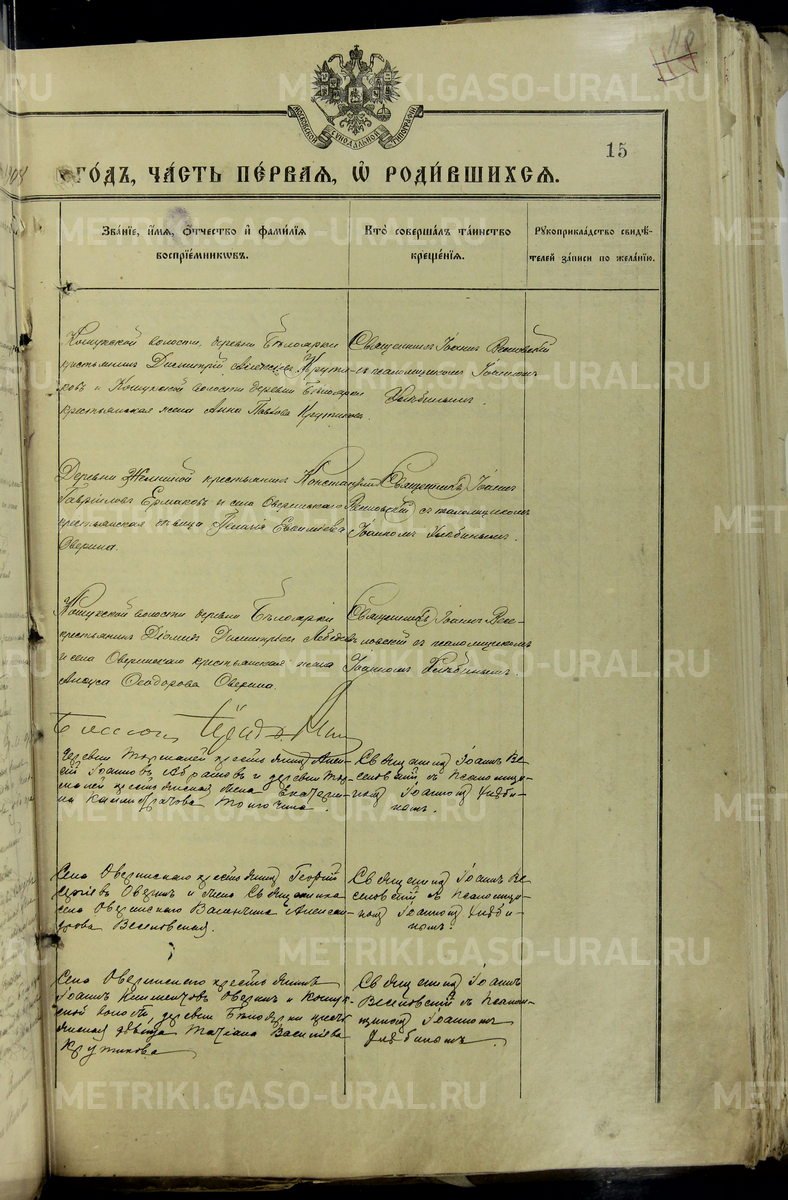 15
118
годъ, часть первая, ѡ родившихся.
Званіе, имя, отчество и фамилія
воспріемниковъ.
Кто совершалъ таинство
крещенія.
Рукоприкладство свидѣ-
телей записи по желанію.
Кошукской волости, деревни Бѣлоярки
крестьянинъ Димитрій Крути-
ковъ и Кошукской волости деревни Бѣлоярки
крестьянская жена Анна Павлова Крутикова
Священникъ Іоаннъ Весновскій
съ псаломщикомъ Іоанномъ
Хлѣбинымъ.
Деревни крестьянинъ Константинъ
Гавріиловъ Ермаковъ и села Оверинскаго
крестьянская дѣвица Евсиміева
Оверина.
Священникъ Іоаннъ
Весновскій съ псаломщикомъ
Іоанномъ Хлѣбинымъ.
Кошукской волости деревни Бѣлоярки
крестьянинъ Діомидъ Димитріевъ Лебедевъ
и села Оверинскаго крестьянская жена
Ѳеодорова Оверина.
Священникъ Іоаннъ Вес-
новскій съ псаломщикомъ
Іоанномъ Хлѣбинымъ.
деревни крестьянинъ Алек-
сій Іоанновъ Абрамовъ и деревни
крестьянская жена Екатери-
на
Священникъ Іоаннъ Ве-
сновскій съ псаломщи-
комъ Іоанномъ Хлѣби-
нымъ.
Села Оверинскаго крестьянинъ Георгій
Сергіевъ Оверинъ и жена Священника
села Оверинскаго Валентина Алексан-
дрова Весновская.
Священникъ Іоаннъ Ве-
сновскій съ псаломщи-
комъ Іоанномъ Хлѣби-
нымъ.
Села Оверинскаго крестьянинъ
Іоаннъ Климентовъ Оверинъ и Кошук-
ской волости, деревни Бѣлоярки крестья-
нская дѣвица Татіана Василіева
Крутикова
Священникъ Іоаннъ
Весновскій съ псалом-
щикомъ Іоанномъ
Хлѣбинымъ.
METRIKI.GASO-URAL.RU